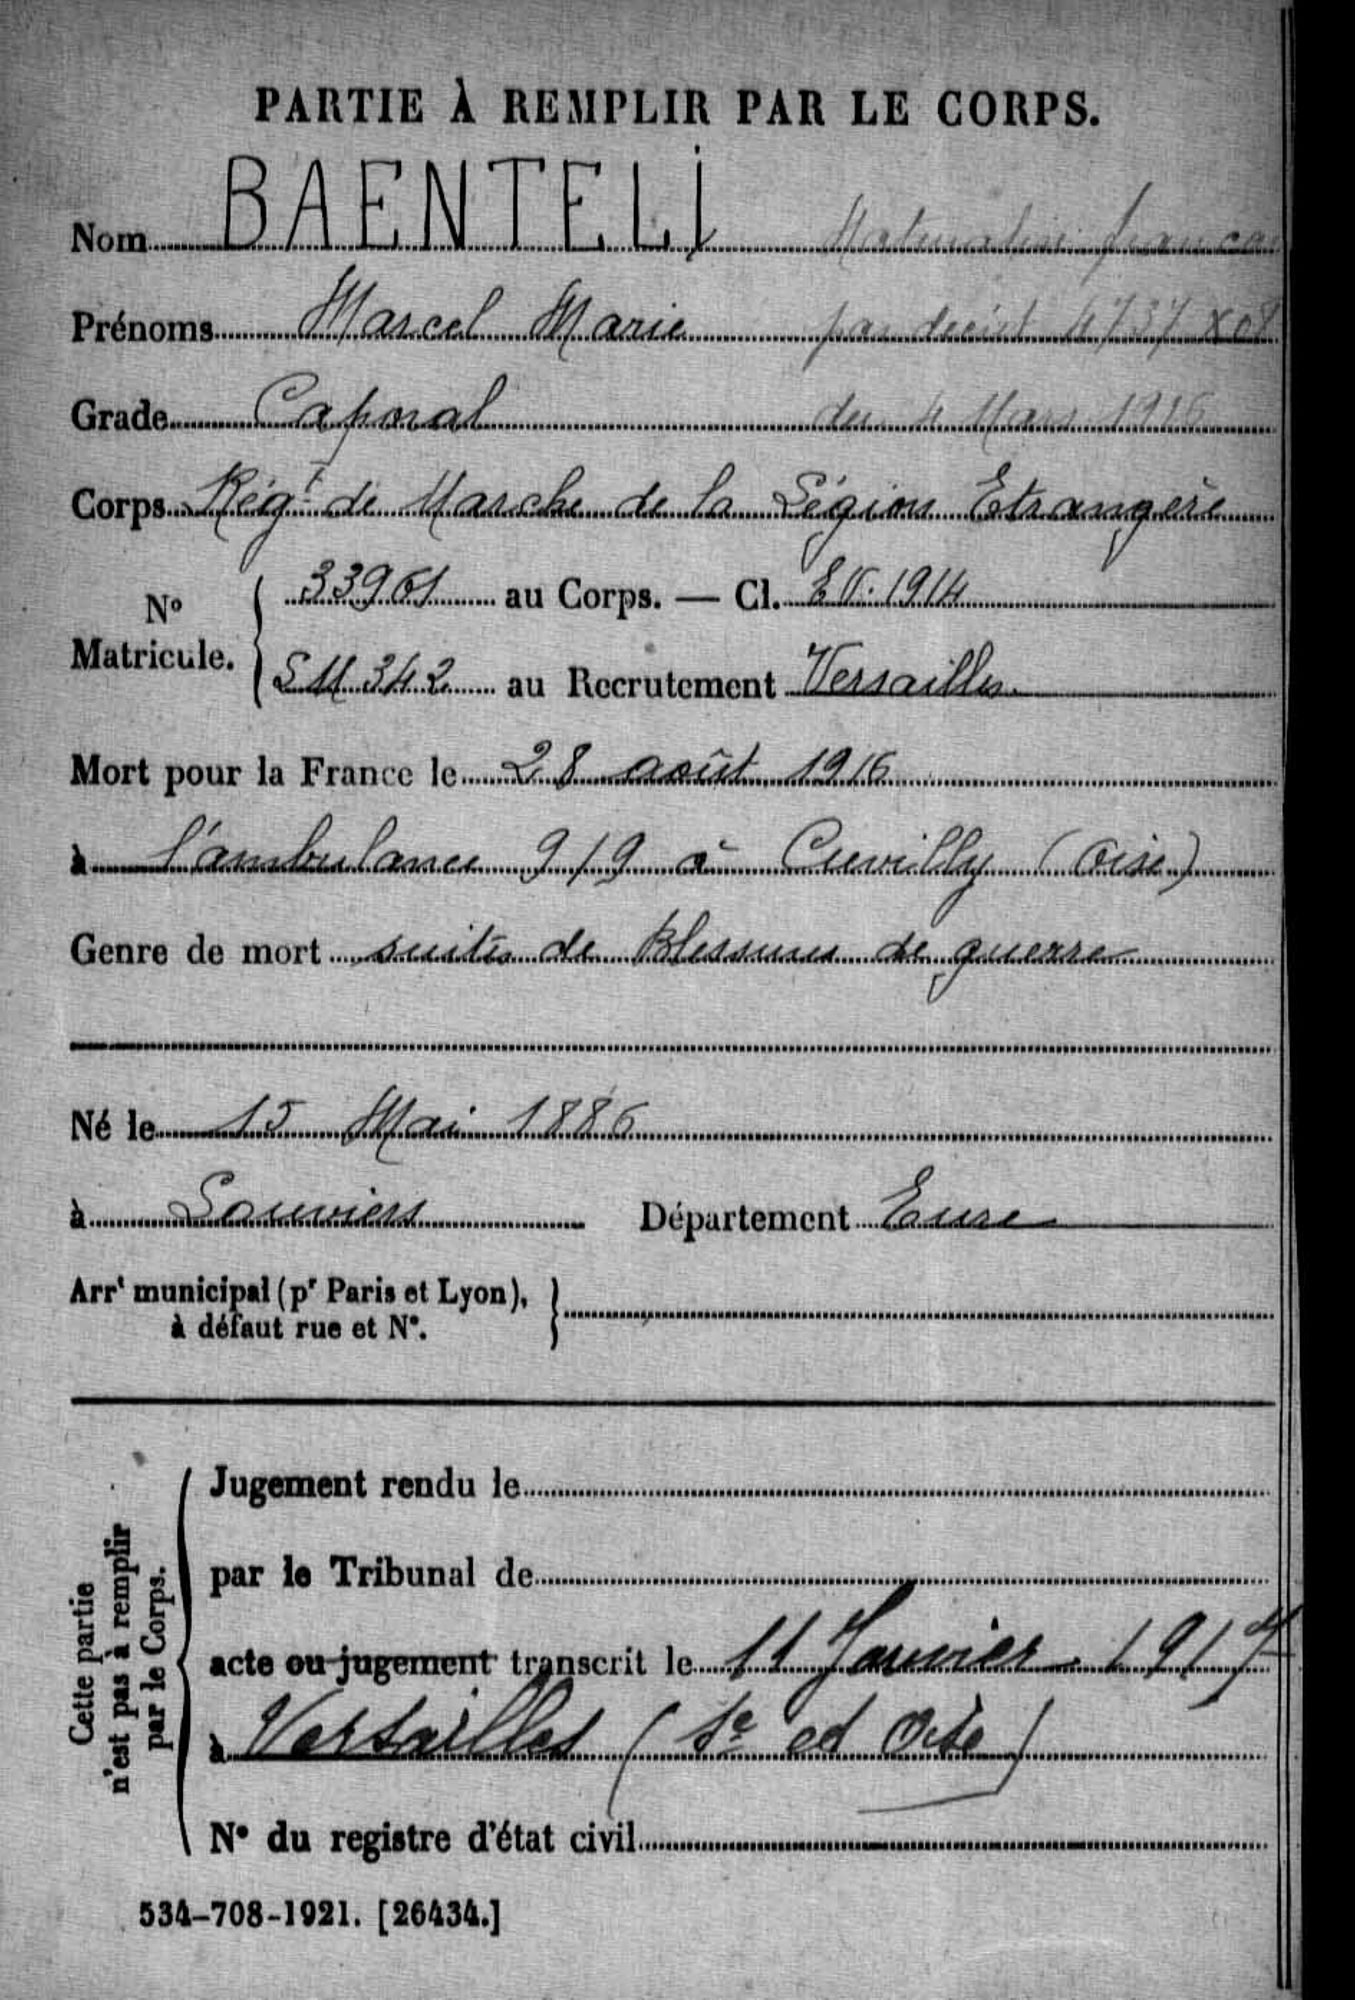 PARTIE À REMPLIR PAR LE CORPS.
Nom BAENTELi Naturalisé français
Prénoms Marcel Marie par décret 4737 X 08
Grade Caporal du 4 Mars 1916
Corps Régt de Marche de la Légion Etrangère
No Matricule. 33961 au Corps. — Cl. E V. 1914
SM 342 au Recrutement Versailles
Mort pour la France le 28 août 1916
à l'ambulance 9/9 à Cuvilly (Oise)
Genre de mort suites de Blessures de guerre
Né le 15 Mai 1886
à Louviers Département Eure
Arrt municipal (pr Paris et Lyon),
à défaut rue et No.
Cette partie
n'est pas à remplir
par le Corps.
Jugement rendu le
par le Tribunal de
acte ou jugement transcrit le 11 Janvier 1917
à Versailles (Se et Oise)
No du registre d'état civil
534-708-1921. [26434.]